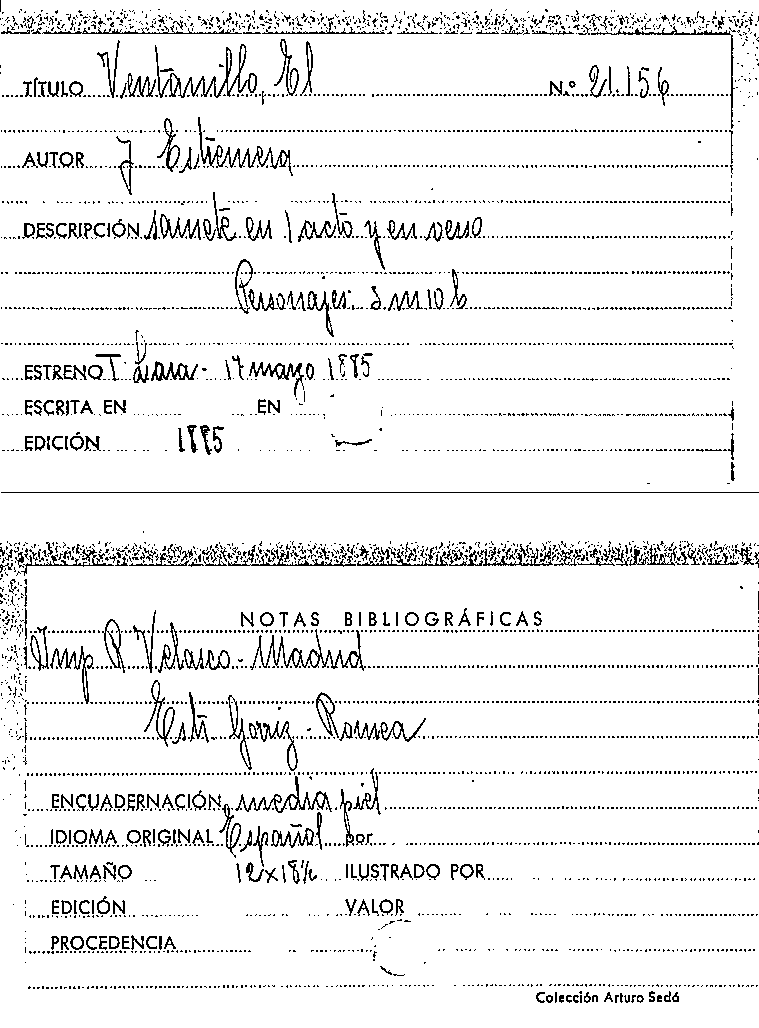 TÍTULO Ventanillo, El N.º 21.156
AUTOR J Estremera
DESCRIPCIÓN sainete en 1 acto y en verso
Personajes: 3 m 10 h
ESTRENO T Lara - 17 mayo 1885
ESCRITA EN EN
EDICIÓN 1885
NOTAS BIBLIOGRÁFICAS
Imp R Velasco - Madrid
Estr. Gorriz - Romea
ENCUADERNACIÓN media piel
IDIOMA ORIGINAL Español por
TAMAÑO 12x18½ ILUSTRADO POR
EDICIÓN VALOR
PROCEDENCIA
Colección Arturo Sedó